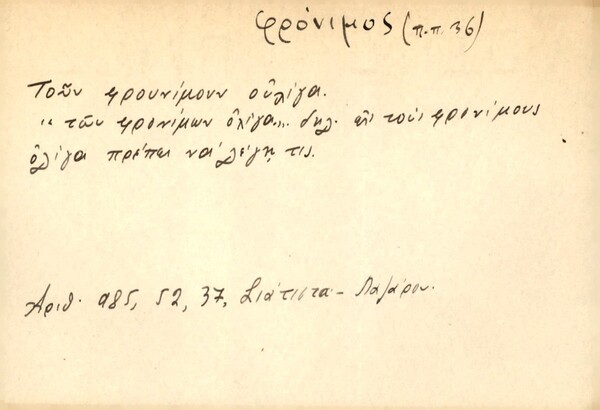 φρόνιμος (π.π. 36)
Τοῦν φρουνίμουν οὐλίγα.
"τῶν φρονίμων ὀλίγα... δηλ. εἰς τοὺς φρονίμους
ὀλίγα πρέπει νὰ λέγῃ τις.
Ἀριθ. 985, 52, 37, Σιάτιστα - Λαζάρου.